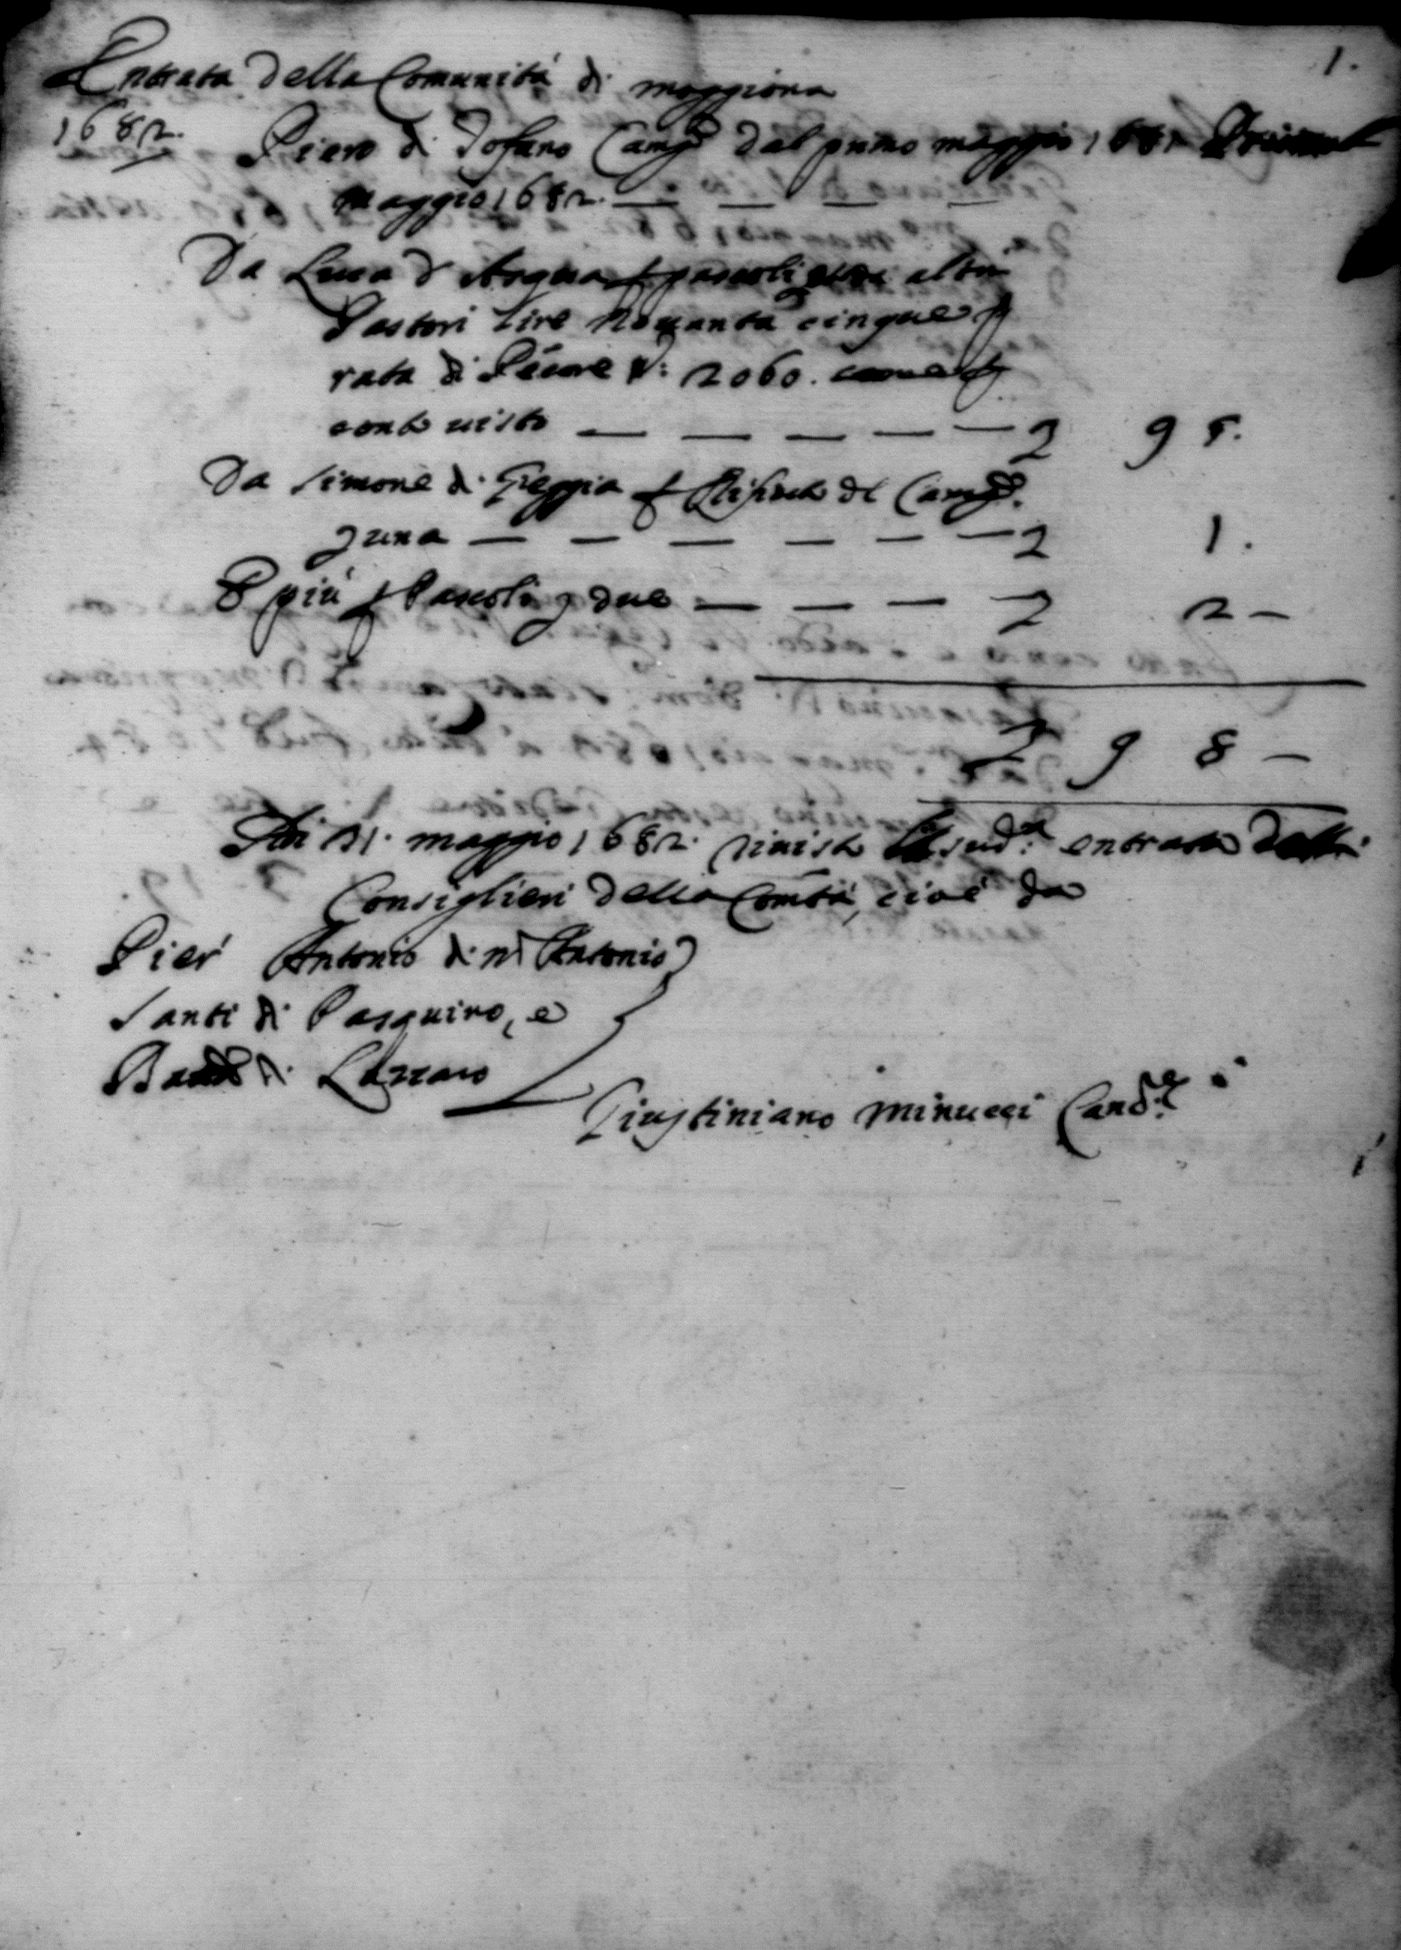 1.
Entrata della Comunità di moggiona
1682. Piero di Tofano Camg.o dal primo maggio 1681
maggio 1682. — — — —
Da Luca d' Arqua p pascoli altri
Pastori lire Novanta cinque p
rata di Pecore N: 2060. come p
conto visto — — — — — £ 95.
Da Simone di Geppia p del Camg.o
£ una — — — — — — £ 1.
E più p Pascoli £ due — — — — £ 2 —
£ 98 —
Adi 31. maggio 1682. rivista la sud.a entrata dalli
Consiglieri della Comtà, cioè da
Pier' Antonio di m Antonio
Santi di Pasquino, e
di Lazzaro
Giustiniano Minucci Canc.re